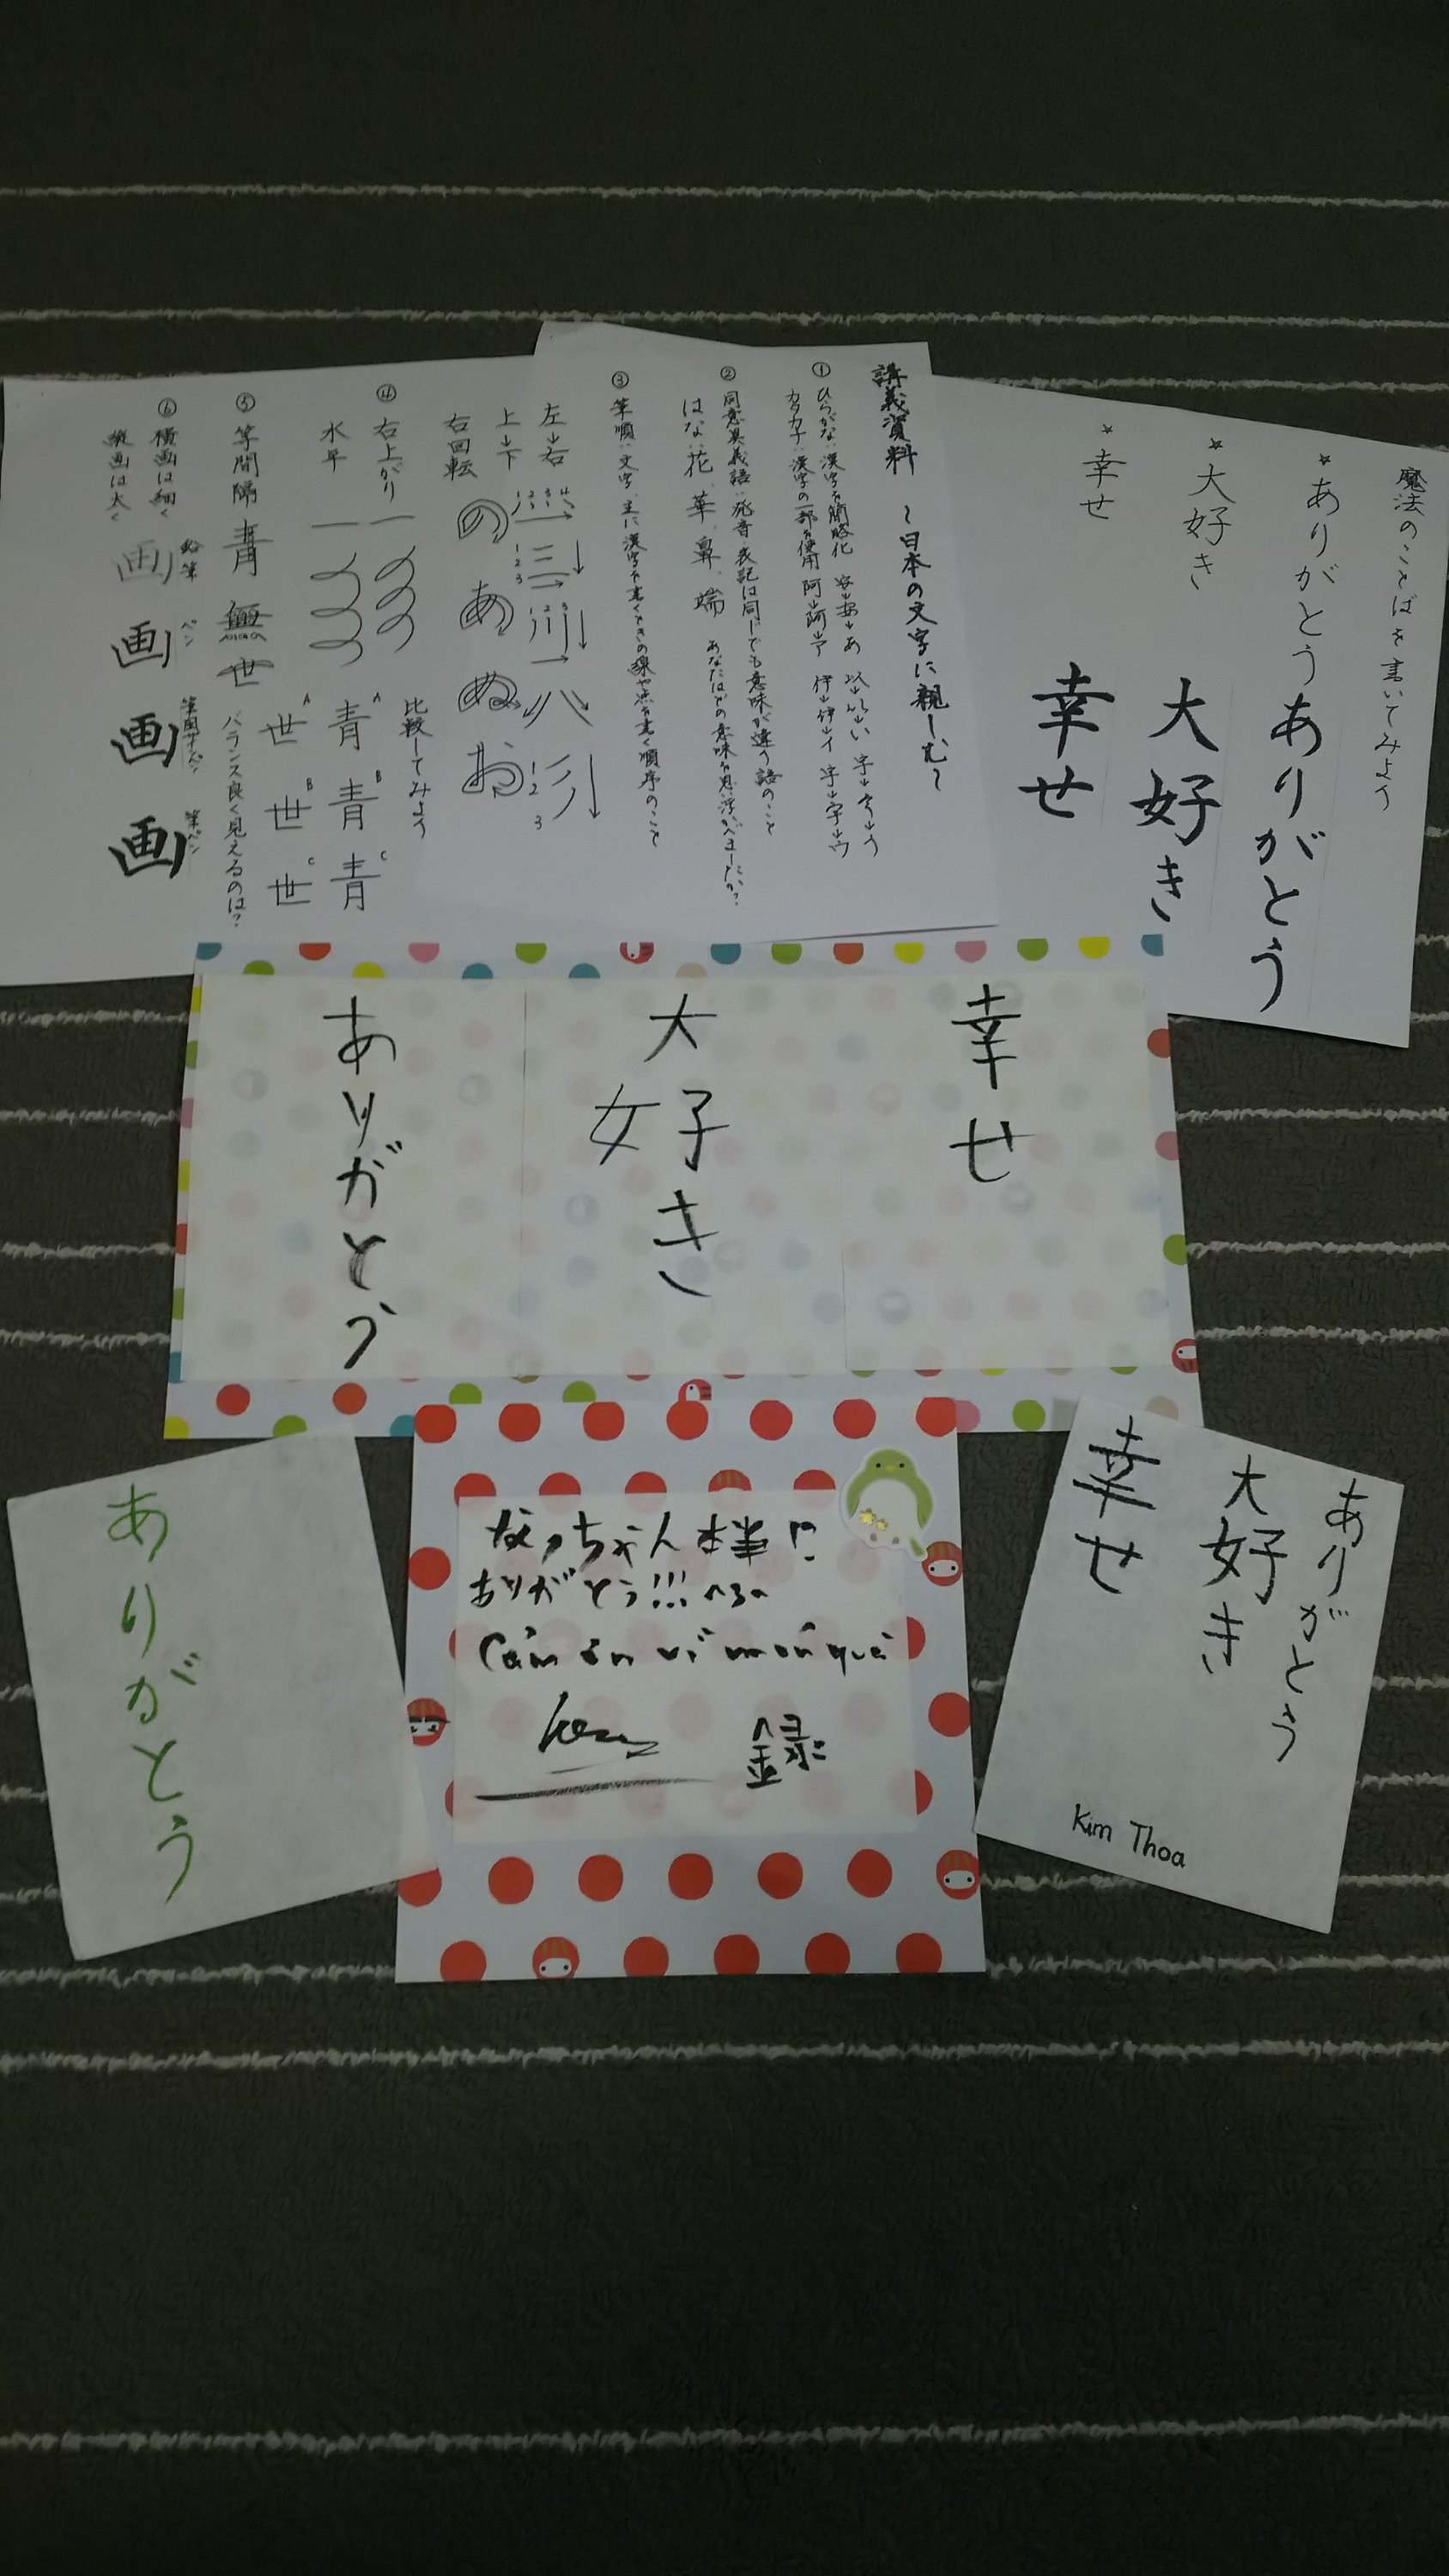 魔法のことばを書いてみよう
☆ありがとう ありがとう
☆大好き 大好き
☆幸せ 幸せ
講義資料 〜日本の文字に親しむ〜
① ひらがな:漢字を簡略化 安→安→あ 以→以→い 宇→宇→う
カタカナ:漢字の一部を使用 阿→阿→ア 伊→伊→イ 宇→宇→ウ
② 同意異義語:発音・表記は同じでも意味が違う語のこと
はな:花、華、鼻、端 あなたはどの意味を思い浮かべましたか?
③ 筆順:文字、主に漢字を書くときの線や点を書く順序のこと
左→右 1 2 3 4
上→下 1 2 3 三 1 2 3 川 八 1 2 3
右回転 の あ ぬ お
比較してみよう
④ 右上がり 一 A 青 B 青 C 青
水平 一 A 世 B 世 C 世
バランス良く見えるのは?
⑤ 等間隔 青 無 世
⑥ 横画は細く 鉛筆 ペン 筆風サインペン 筆ペン
縦画は太く 画 画 画 画
幸せ
大好き
ありがとう
ありがとう
なっちゃん様!?
ありがとう!!!
Cảm ơn vì món quà
録
ありがとう
大好き
幸せ
Kim Thoa